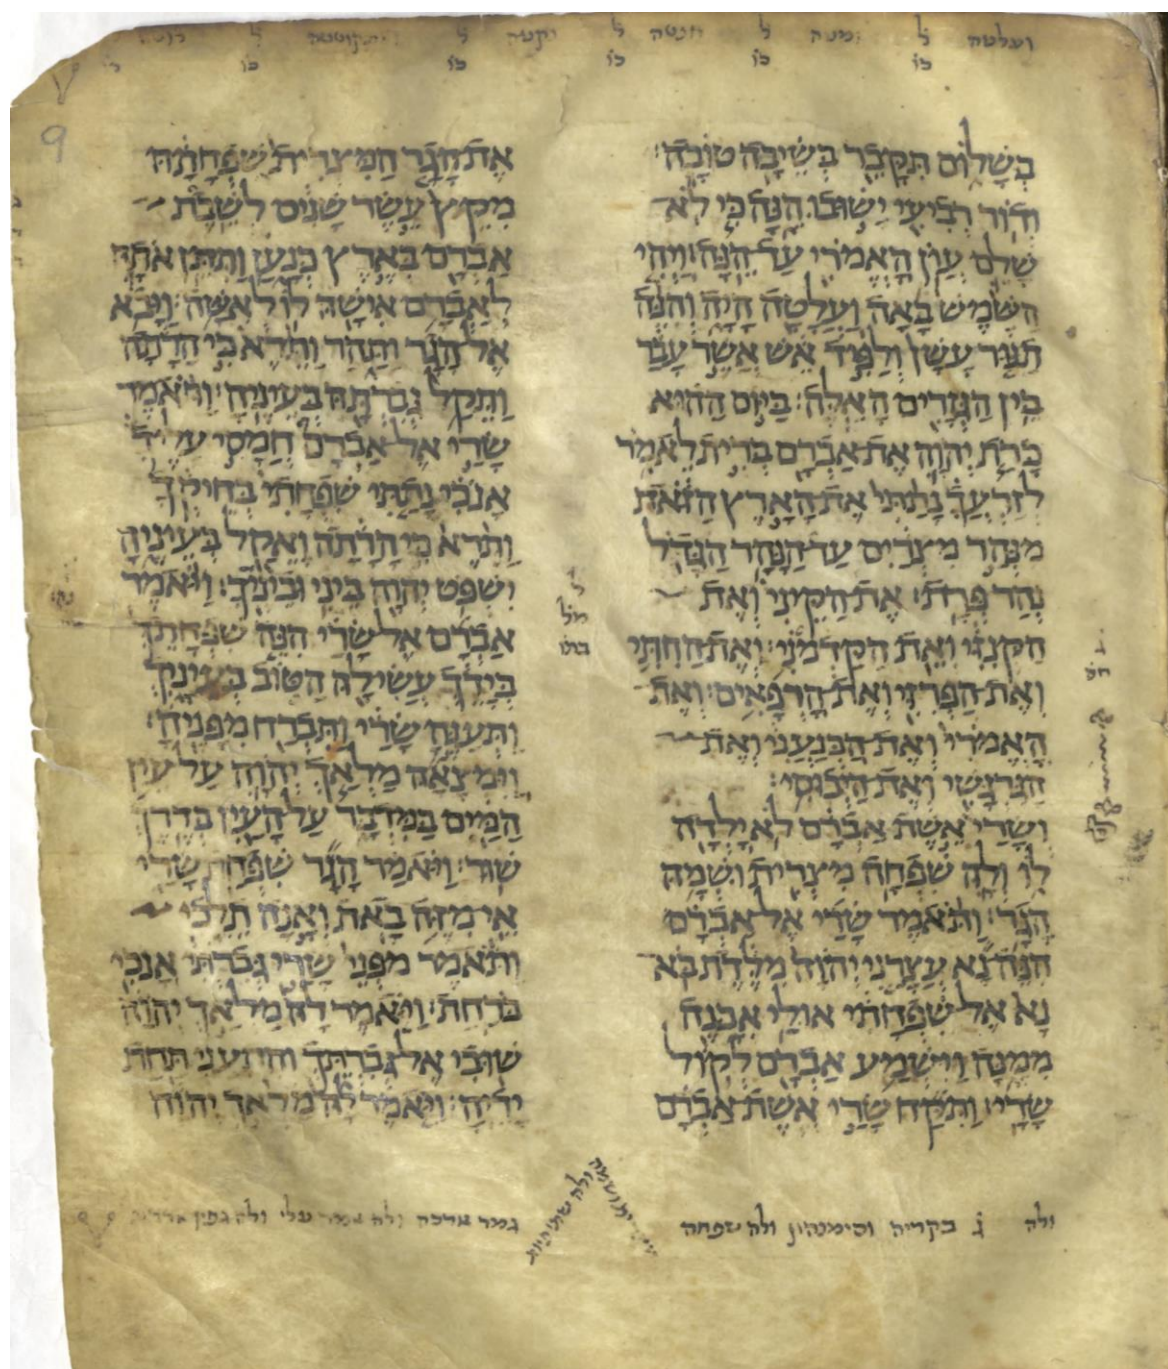 ועלטה ל
כו
בשלום תקבר בשיבה טובה׃
ודור רביעי ישובו הנה כי לא
שלם עון האמרי עד הנה׃ ויהי
השמש באה ועלטה היה והנה
תנור עשן ולפיד אש אשר עבר
בין הגזרים האלה׃ ביום ההוא
כרת יהוה את אברם ברית לאמר
לזרעך נתתי את הארץ הזאת
מנהר מצרים עד הנהר הגדל
נהר פרת׃ את הקיני ואת
הקנזי ואת הקדמני׃ ואת החתי
ואת הפרזי ואת הרפאים׃ ואת
האמרי ואת הכנעני ואת
הגרגשי ואת היבוסי׃
ושרי אשת אברם לא ילדה
לו ולה שפחה מצרית ושמה
הגר׃ ותאמר שרי אל אברם
הנה נא עצרני יהוה מלדת בא
נא אל שפחתי אולי אבנה
ממנה וישמע אברם לקול
שרי׃ ותקח שרי אשת אברם
את הגר המצרית שפחתה
מקץ עשר שנים לשבת
אברם בארץ כנען ותתן אתה
לאברם אישה לו לאשה׃ ויבא
אל הגר ותהר ותרא כי הרתה
ותקל גברתה בעיניה׃ ותאמר
שרי אל אברם חמסי עליך
אנכי נתתי שפחתי בחיקך
ותרא כי הרתה ואקל בעיניה
ישפט יהוה ביני וביניך׃ ויאמר
אברם אל שרי הנה שפחתך
בידך עשי לה הטוב בעיניך
ותענה שרי ותברח מפניה׃
וימצאה מלאך יהוה על עין
המים במדבר על העין בדרך
שור׃ ויאמר הגר שפחת שרי
אי מזה באת ואנה תלכי
ותאמר מפני שרי גברתי אנכי
ברחת׃ ויאמר לה מלאך יהוה
שובי אל גברתך והתעני תחת
ידיה׃ ויאמר לה מלאך יהוה
ולה ג בקריה וסימנהון ולה שפחה